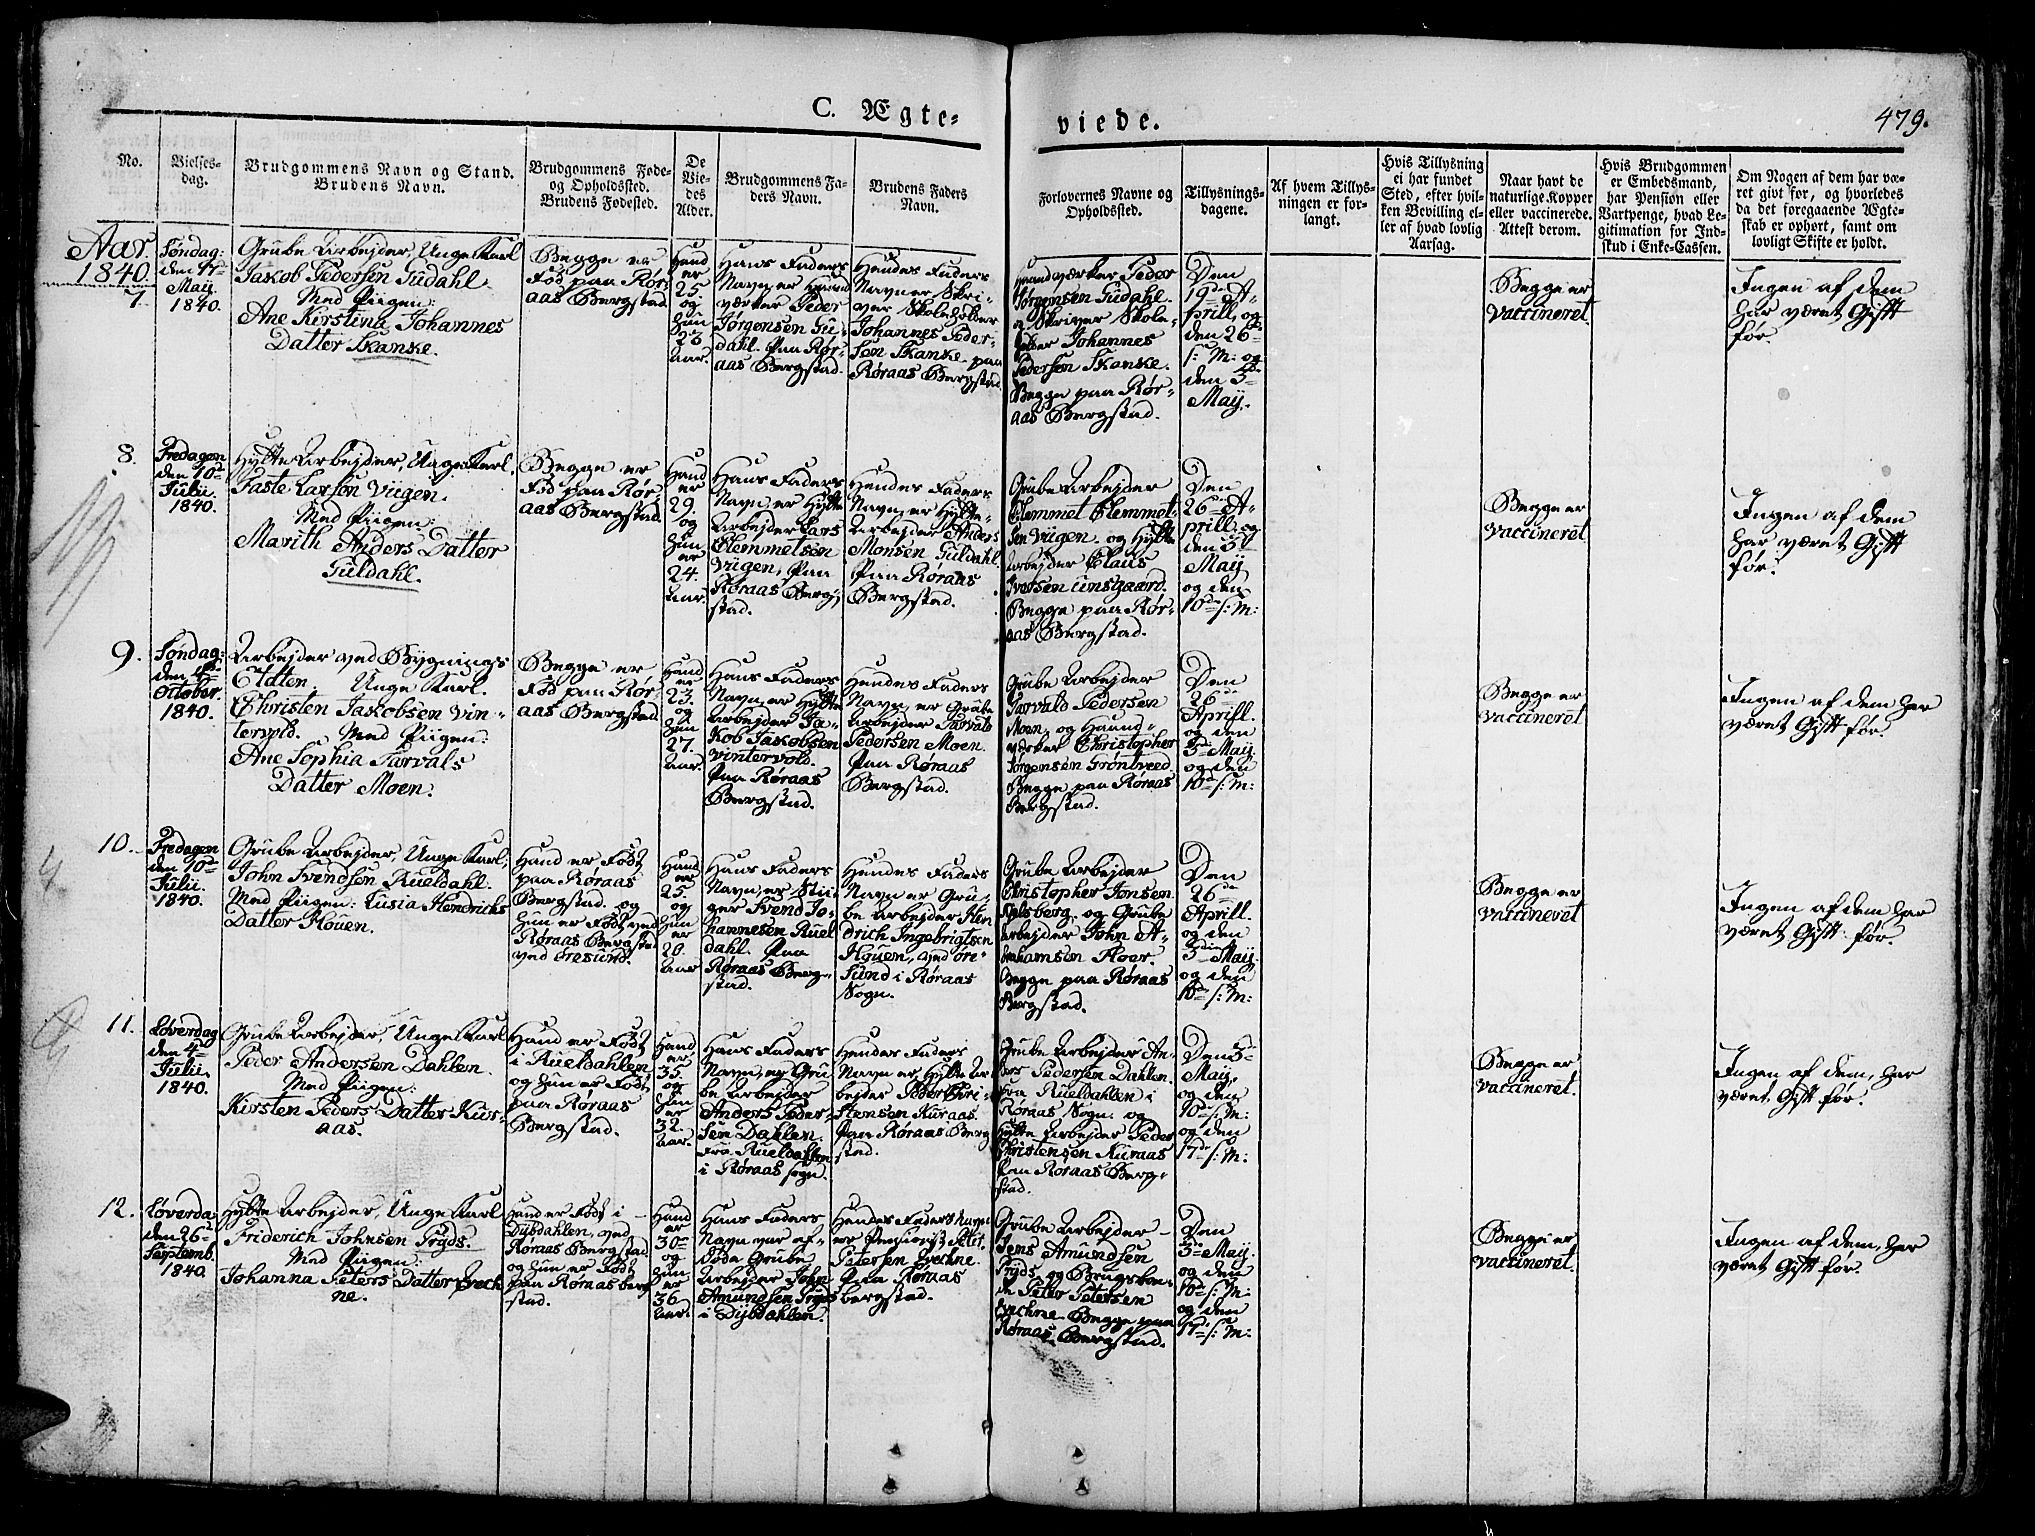 C. Ægte-
viede.
479.
No.
Vielses-
dag.
Brudgommens Navn og Stand.
Brudens Navn.
Brudgommens Føde-
og Opholdssted.
Brudens Fødested.
De
Vie-
des
Alder.
Brudgommens Fa-
ders Navn.
Brudens Faders
Navn.
Forlovernes Navne og
Opholdssted.
Tillysnings-
dagene.
Af hvem Tillys-
ningen er for-
langt.
Hvis Tillysning
ei har fundet
Sted, efter hvil-
ken Bevilling el-
ler af hvad lovlig
Aarsag.
Naar havt de
naturlige Kopper
eller vaccinerede.
Attest derom.
Hvis Brudgommen
er Embedsmand,
har Pension eller
Vartpenge, hvad Le-
gitimation for Ind-
skud i Enke-Cassen.
Om Nogen af dem har væ-
ret givt før, og hvorledes
da det foregaaende Ægte-
skab er ophørt, samt om
lovligt Skifte er holdt.
Aar.
1840.
7.
Søndag:
den
May
1840.
Grube Arbejder, Unge Karl
Jakob Pedersen Sudahl
Med Piigen:
Ane Kirstina Johannes
Datter Skanke.
Begge er
Fød paa Rør-
aas Bergstad
Hand
er
25
og
Hun
23
Aar.
Hans Faders
Navn er Haand
værker Peder
Jørgensen Su-
dahl. Paa Rør-
aas Bergstad.
Hendes Faders
Navn er Skri-
ver Skoleholder
Johannes Peder-
sen Skanke paa
Røraas Bergstad
Haandværker Peder
Jørgensen Sudahl.
o Skriver Skole-
holder Johannes
Pedersen Skanke.
Begge paa Rør-
aas Bergstad.
Den
19de A-
prill, og
den 26de
s: M: og
den 3de
May.
Begge er
vaccineret.
Ingen af dem
har været Gift
før.
8.
Fredagen
den 10de
Julii.
1840.
Hytte Arbejder, Unge Karl.
Taste Larsen Viigen.
Med Piigen:
Marith Anders Datter
Guldahl.
Begge er
Fød paa Rør-
aas Bergstad.
Hand
er
29.
og
Hun
er
24.
Aar.
Hans Faders
Navn, er Hytte
Arbejder Lars
Clemmetsen
Viigen, Paa
Røraas Berg-
stad.
Hendes Faders
Navn, er Hytte-
Arbejder Anders
Monsen Guldahl.
Paa Røraas
Bergstad.
Grube Arbejder
Clemmet Clemmet-
sen Viigen. og Hytte
Arbejder Claus
Iversen
Begge paa Rør-
aas Bergstad.
Den
26de A-
prill, og
den 3de
May
og den
10de s: M:
Begge er
vaccineret
Ingen af dem
har været Gift
før.
9.
Søndag:
den 4de
October.
1840.
Arbejder ved Bygnings
Etaten. Unge Karl.
Christen Jakobsen Vin-
tervold. Med Piigen:
Ane Sophia Tarvals
Datter Moen.
Begge er
Fød paa Rør-
aas Bergstad
Hand
er
23.
og
Hun
27.
Aar.
Hans Faders
Navn, er Hytte
Arbejder Ja-
kob Jakobsen
Vintervold.
Paa Røraas
Bergstad.
Hendes Faders
Navn, er Grube
Arbejder Tarvald
Pedersen Moen.
Paa Røraas
Bergstad.
Grube Arbejder
Tarvald Pedersen
Moen, og Haand-
værker Christopher
Jørgensen Grøntveed
Begge paa Røraas
Bergstad.
Den
26de
Aprill.
og den
3de May.
og den
10de s: M:
Begge er
vaccineret
Ingen af dem har
været Gift før.
10.
Fredagen
den 10de
Julii.
1840.
Grube Arbejder, Unge Karl,
John Svendsen Rueldahl.
Med Piigen: Lusia Hendrichs
Datter Houen.
Hand er Født
paa Røraas
Bergstad. og
Hun er Født ved
Røraas Bergstad
ved Øresund.
Hand
er
25
og
Hun
er
20.
Aar
Hans Faders
Navn, er Stii-
ger Svend Jo-
hannesen Ruel
dahl. Paa
Røraas Berg-
stad.
Hendes Faders
Navn er Gru-
be Arbejder Hen
drich Ingebrigtsen
Houen, ved Øre-
Sund i Røraas
Sogn.
Grube Arbejder
Christopher Jonsen
og Grube
Arbejder John A-
brahamsen Floer.
Begge paa Røraas
Bergstad.
Den
26de
Aprill.
og den
3die May.
og den
10de s: M:
Begge er
vaccineret
Ingen af dem har
været Gift før.
11.
Løverdag
den 4de
Julii.
1840.
Grube Arbejder, Unge Karl
Peder Andersen Dahlen.
Med Piigen:
Kirsten Peders Datter Kur-
aas.
Hand er Født
i Rueldahlen
og Hun er Født
paa Røraas
Bergstad.
Hand
er
35.
og
Hun
er
32.
Aar.
Hans Faders
Navn, er Gru
be Arbejder
Anders Peder-
sen Dahlen.
fra Rueldahlen
i Røraas Sogn.
Hendes Faders
Navn er Hytte Ar
bejder Peder Chri-
stensen Kuraas.
Paa Røraas Berg
stad.
Grube Arbejder An-
ders Pedersen Dahlen.
fra Rueldahlen i
Røraas Sogn. og
Hytte Arbejder Peder
Christensen Kuraas
Paa Røraas Berg-
stad.
Den 3de
May.
og den
10de s: M:
og den
17de s: M:
Begge er
vaccineret.
Ingen af dem, har
været Gift før.
12.
Løverda:
den 26de
Septemb.
1840.
Hytte Arbejder, Unge Karl
Friderich Johnsen Tryds.
Med Piigen:
Johanna Peters Datter Evech
ne.
Hand er Født i
Dybdahlen, ved
Røraas Bergstad
og Hun er Født
paa Røraas berg
stad.
Hand
er
30
og
Hun
er
36.
Aar.
Hans Faders
Navn var af-
døde Grube
Arbejder John
Amundsen Tryds
i Dybdahlen.
Hendes Faders Navn
er Pensionist Peter
Petersen Evechne.
Paa Røraas
bergstad.
Grube Arbejder
Jens Amundsen
Tryds, og Brugsbon-
de Peter Petersen
Evechne Begge paa
Røraas Bergstad.
Den
3de May.
og den
10de s: M:
og den
17de s: M:
Begge er
vaccineret.
Ingen af dem, har
været Gift før.